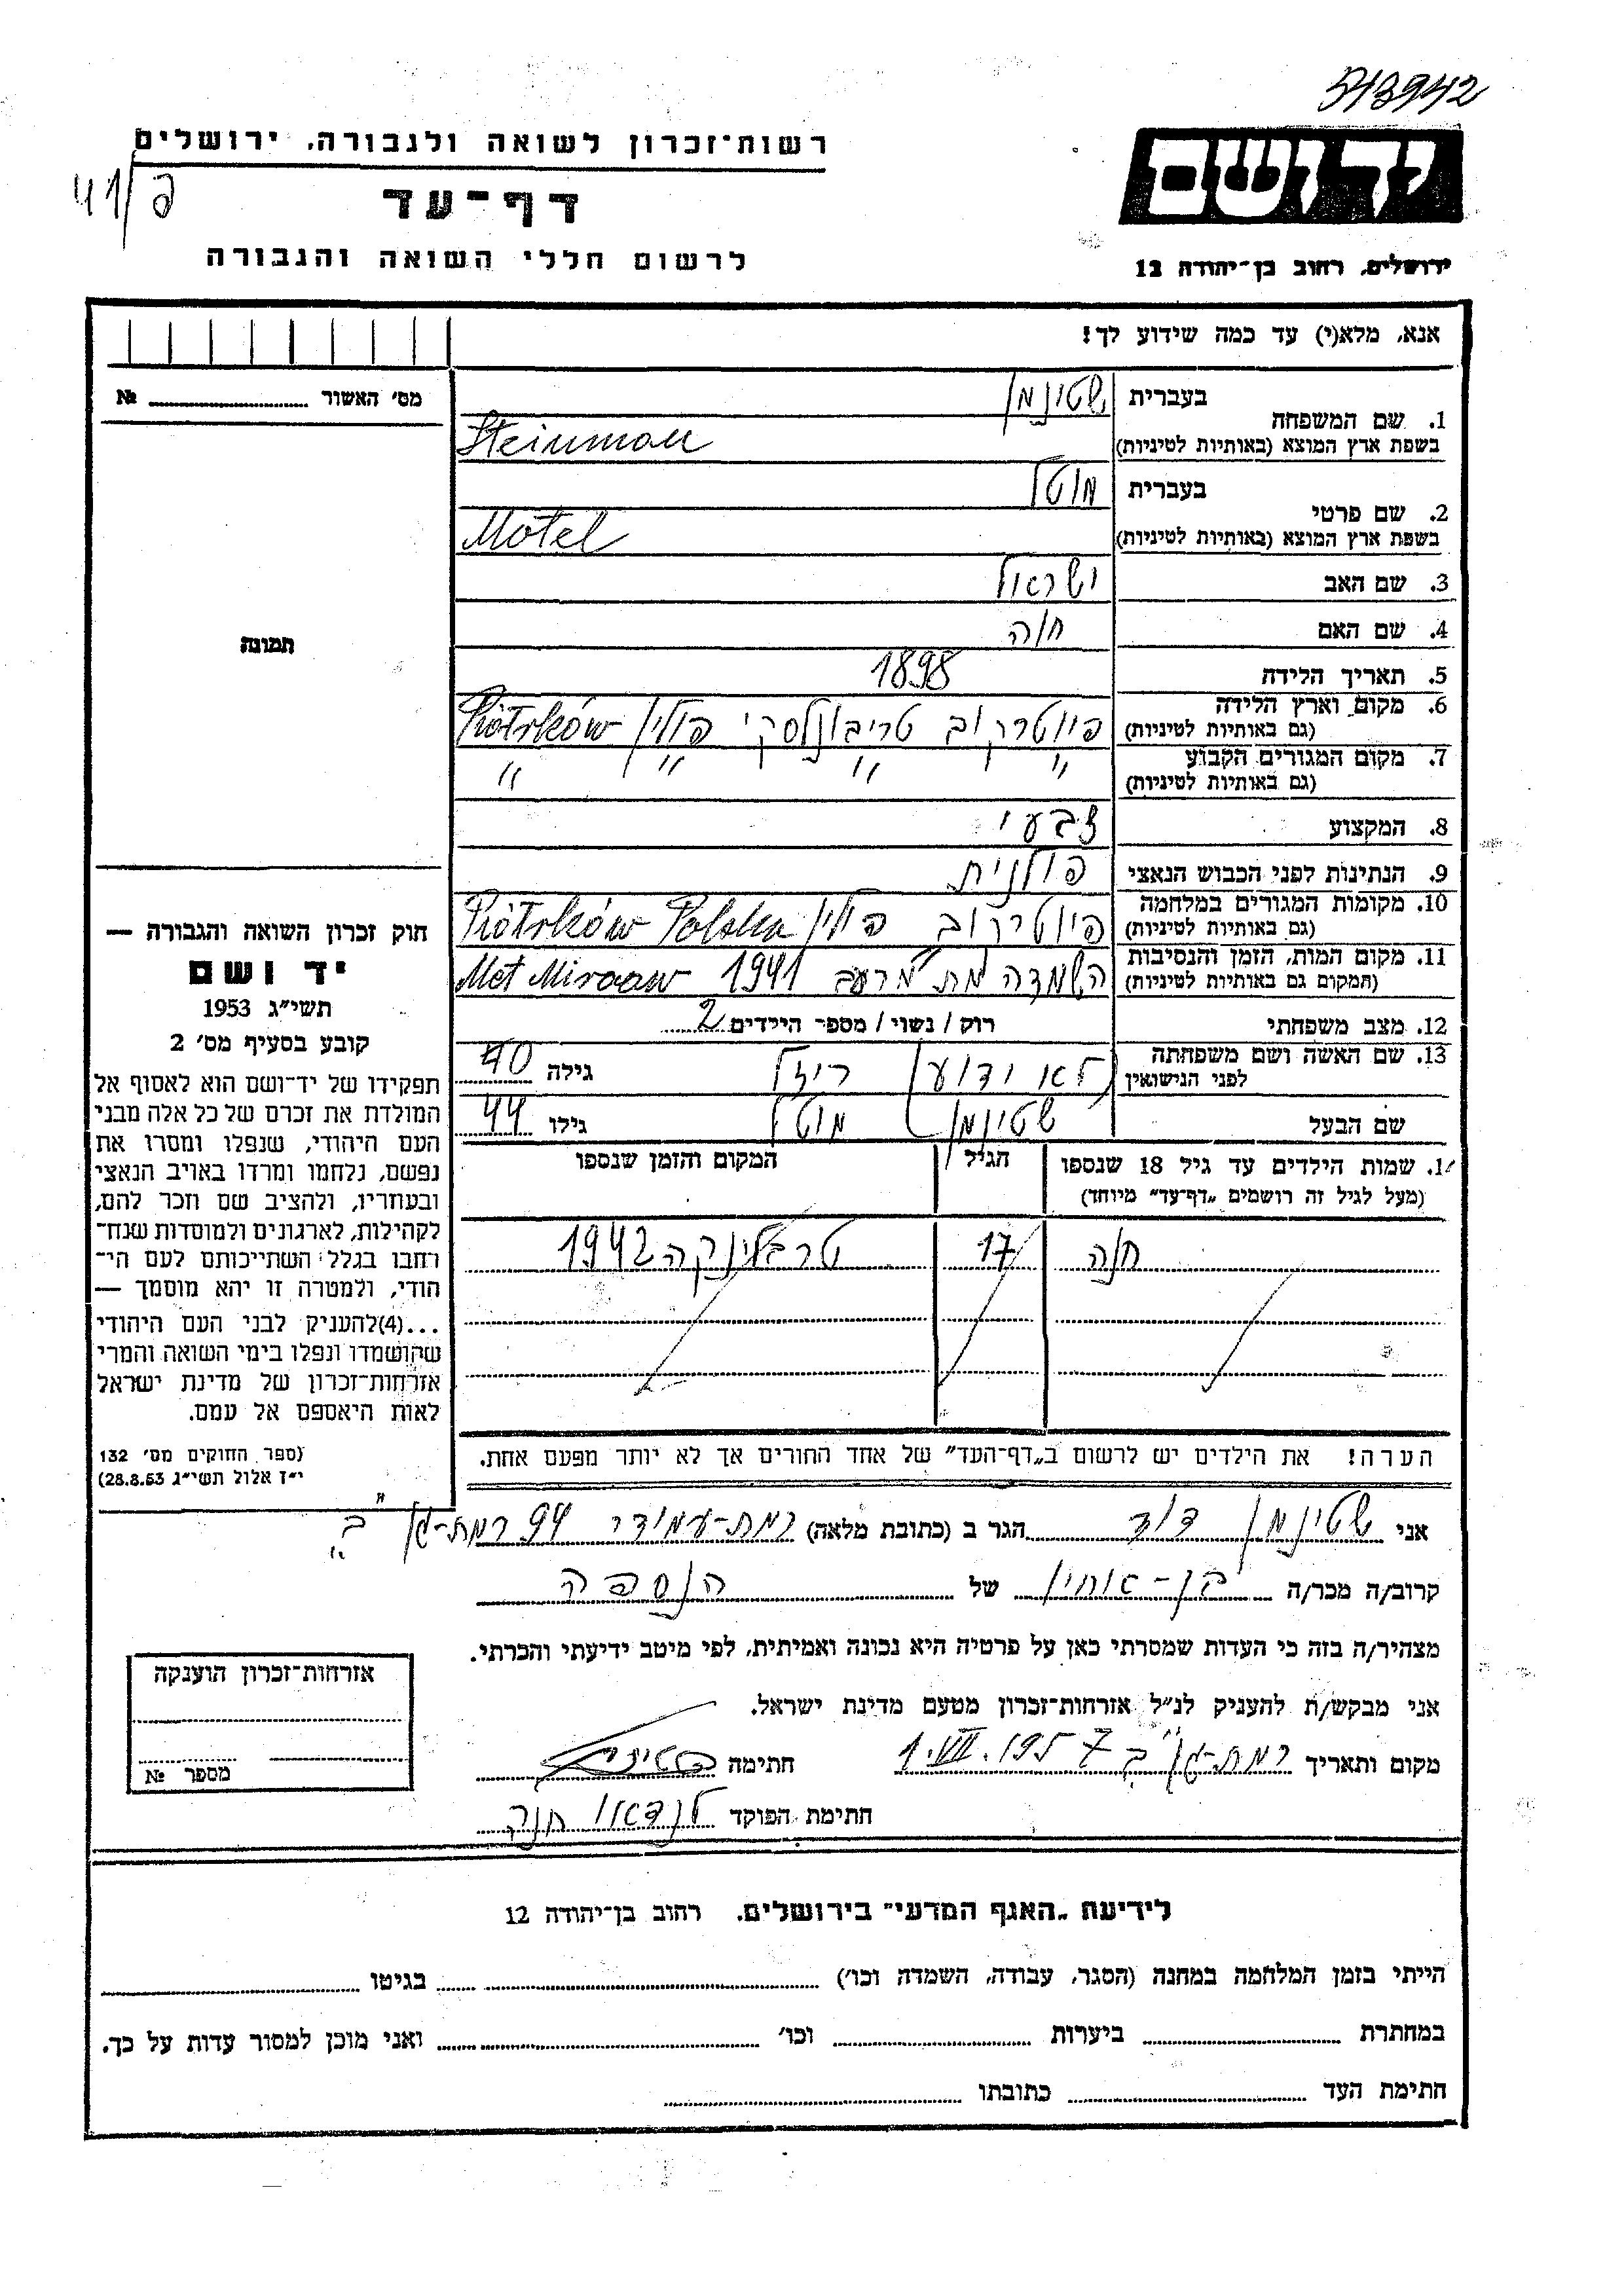 543942
יד ושם
רשות־זכרון לשואה ולגבורה, ירושלים
41/פ
דף־עד
לרשום חללי השואה והגבורה
ירושלים, רחוב בן־יהודה 12
אנא, מלא(י) עד כמה שידוע לך!
מס' האשור № 
1. שם המשפחה בעברית שטינמן
בשפת ארץ המוצא (באותיות לטיניות) Steinman
2. שם פרטי בעברית מוטל
בשפת ארץ המוצא (באותיות לטיניות) Motel
3. שם האב ישראל
4. שם האם חוה
תמונה
5. תאריך הלידה 1898
6. מקום וארץ הלידה פיוטרקוב טריבונלסקי פולין Piotrków
(גם באותיות לטיניות)
7. מקום המגורים הקבוע " " " "
(גם באותיות לטיניות)
8. המקצוע צבעי
9. הנתינות לפני הכבוש הנאצי פולנית
10. מקומות המגורים במלחמה פיוטרקוב פולין Piotrków Polska
(גם באותיות לטיניות)
11. מקום המות, הזמן והנסיבות השמדה 1941
(המקום גם באותיות לטיניות)
12. מצב משפחתי רוק / נשוי / מספר הילדים 2
13. שם האשה ושם משפחתה לפני הנישואין (לא ידוע) ריזל גילה 40
שם הבעל שטינמן מוטל גילו 44
1. שמות הילדים עד גיל 18 שנספו הגיל המקום והזמן שנספו
(מעל לגיל זה רושמים „דף־עד" מיוחד)
חנה 17 טרבלינקה 1942
הערה! את הילדים יש לרשום ב„דף־העד" של אחד ההורים אך לא יותר מפעם אחת.
חוק זכרון השואה והגבורה —
יד ושם
תשי״ג 1953
קובע בסעיף מס' 2
תפקידו של יד־ושם הוא לאסוף אל
המולדת את זכרם של כל אלה מבני
העם היהודי, שנפלו ומסרו את
נפשם, נלחמו ומרדו באויב הנאצי
ובעוזריו, ולהציב שם וזכר להם,
לקהילות, לארגונים ולמוסדות שנח־
רחבו בגלל השתייכותם לעם הי־
הודי, ולמטרה זו יהא מוסמך —
...(4)להעניק לבני העם היהודי
שהושמדו ונפלו בימי השואה והמרי
אזרחות־זכרון של מדינת ישראל
לאות היאספם אל עמם.
(ספר החוקים מס' 132
י״ז אלול תשי״ג 28.8.53)
אני שטינמן דוד הגר ב (כתובת מלאה) רמת-עמידר 94 רמת-גן ב'
קרוב/ה מכר/ה בן-אחיו של הנספה
מצהיר/ה בזה כי העדות שמסרתי כאן על פרטיה היא נכונה ואמיתית, לפי מיטב ידיעתי והכרתי.
אני מבקש/ת להעניק לנ״ל אזרחות־זכרון מטעם מדינת ישראל.
מקום ותאריך רמת-גן ב' 1.VII.1957 חתימה
חתימת הפוקד לנדאו חנה
אזרחות־זכרון הוענקה
מספר №
לידיעת „האגף המדעי" בירושלים, רחוב בן־יהודה 12
הייתי בזמן המלחמה במחנה (הסגר, עבודה, השמדה וכו') בגיטו
במחתרת ביערות וכו' ואני מוכן למסור עדות על כך.
חתימת העד כתובתו